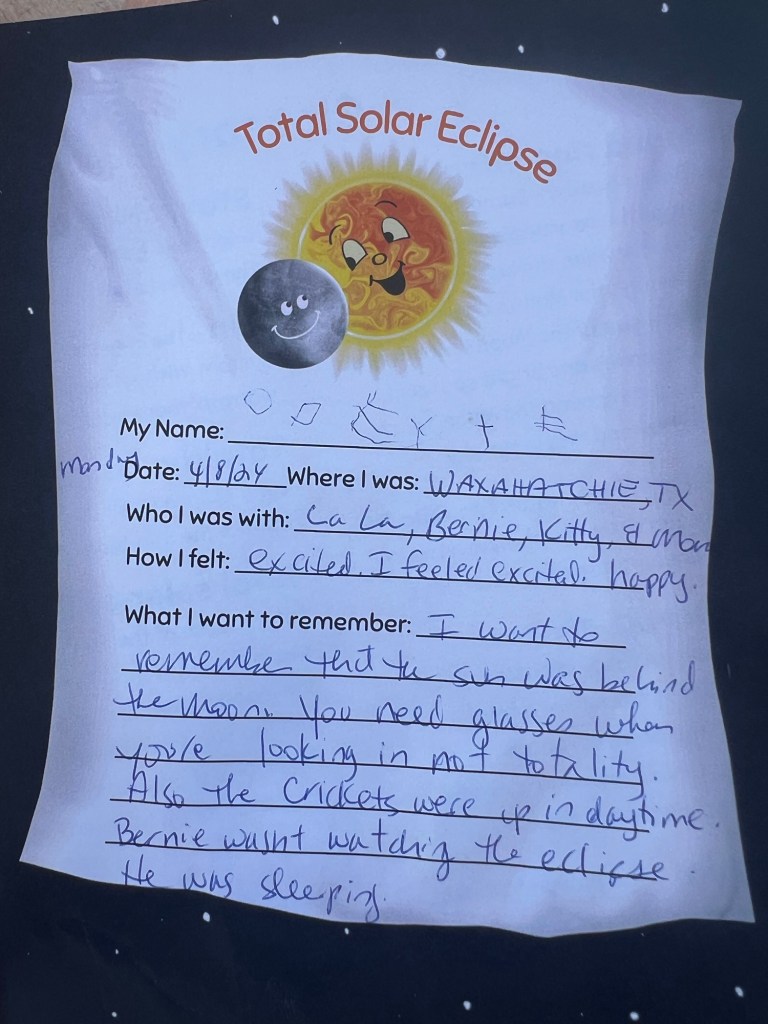 Total Solar Eclipse
My Name:
Monday Date: 4/8/24 Where I was: WAXAHATCHIE, TX
Who I was with: La La, Bernie, Kitty, & Mom
How I felt: excited. I feeled excited. happy.
What I want to remember: I want to
remember that the sun was behind
the moon. You need glasses when
you're looking in not totality.
Also the crickets were up in daytime.
Bernie wasnt watching the eclipse.
He was sleeping.